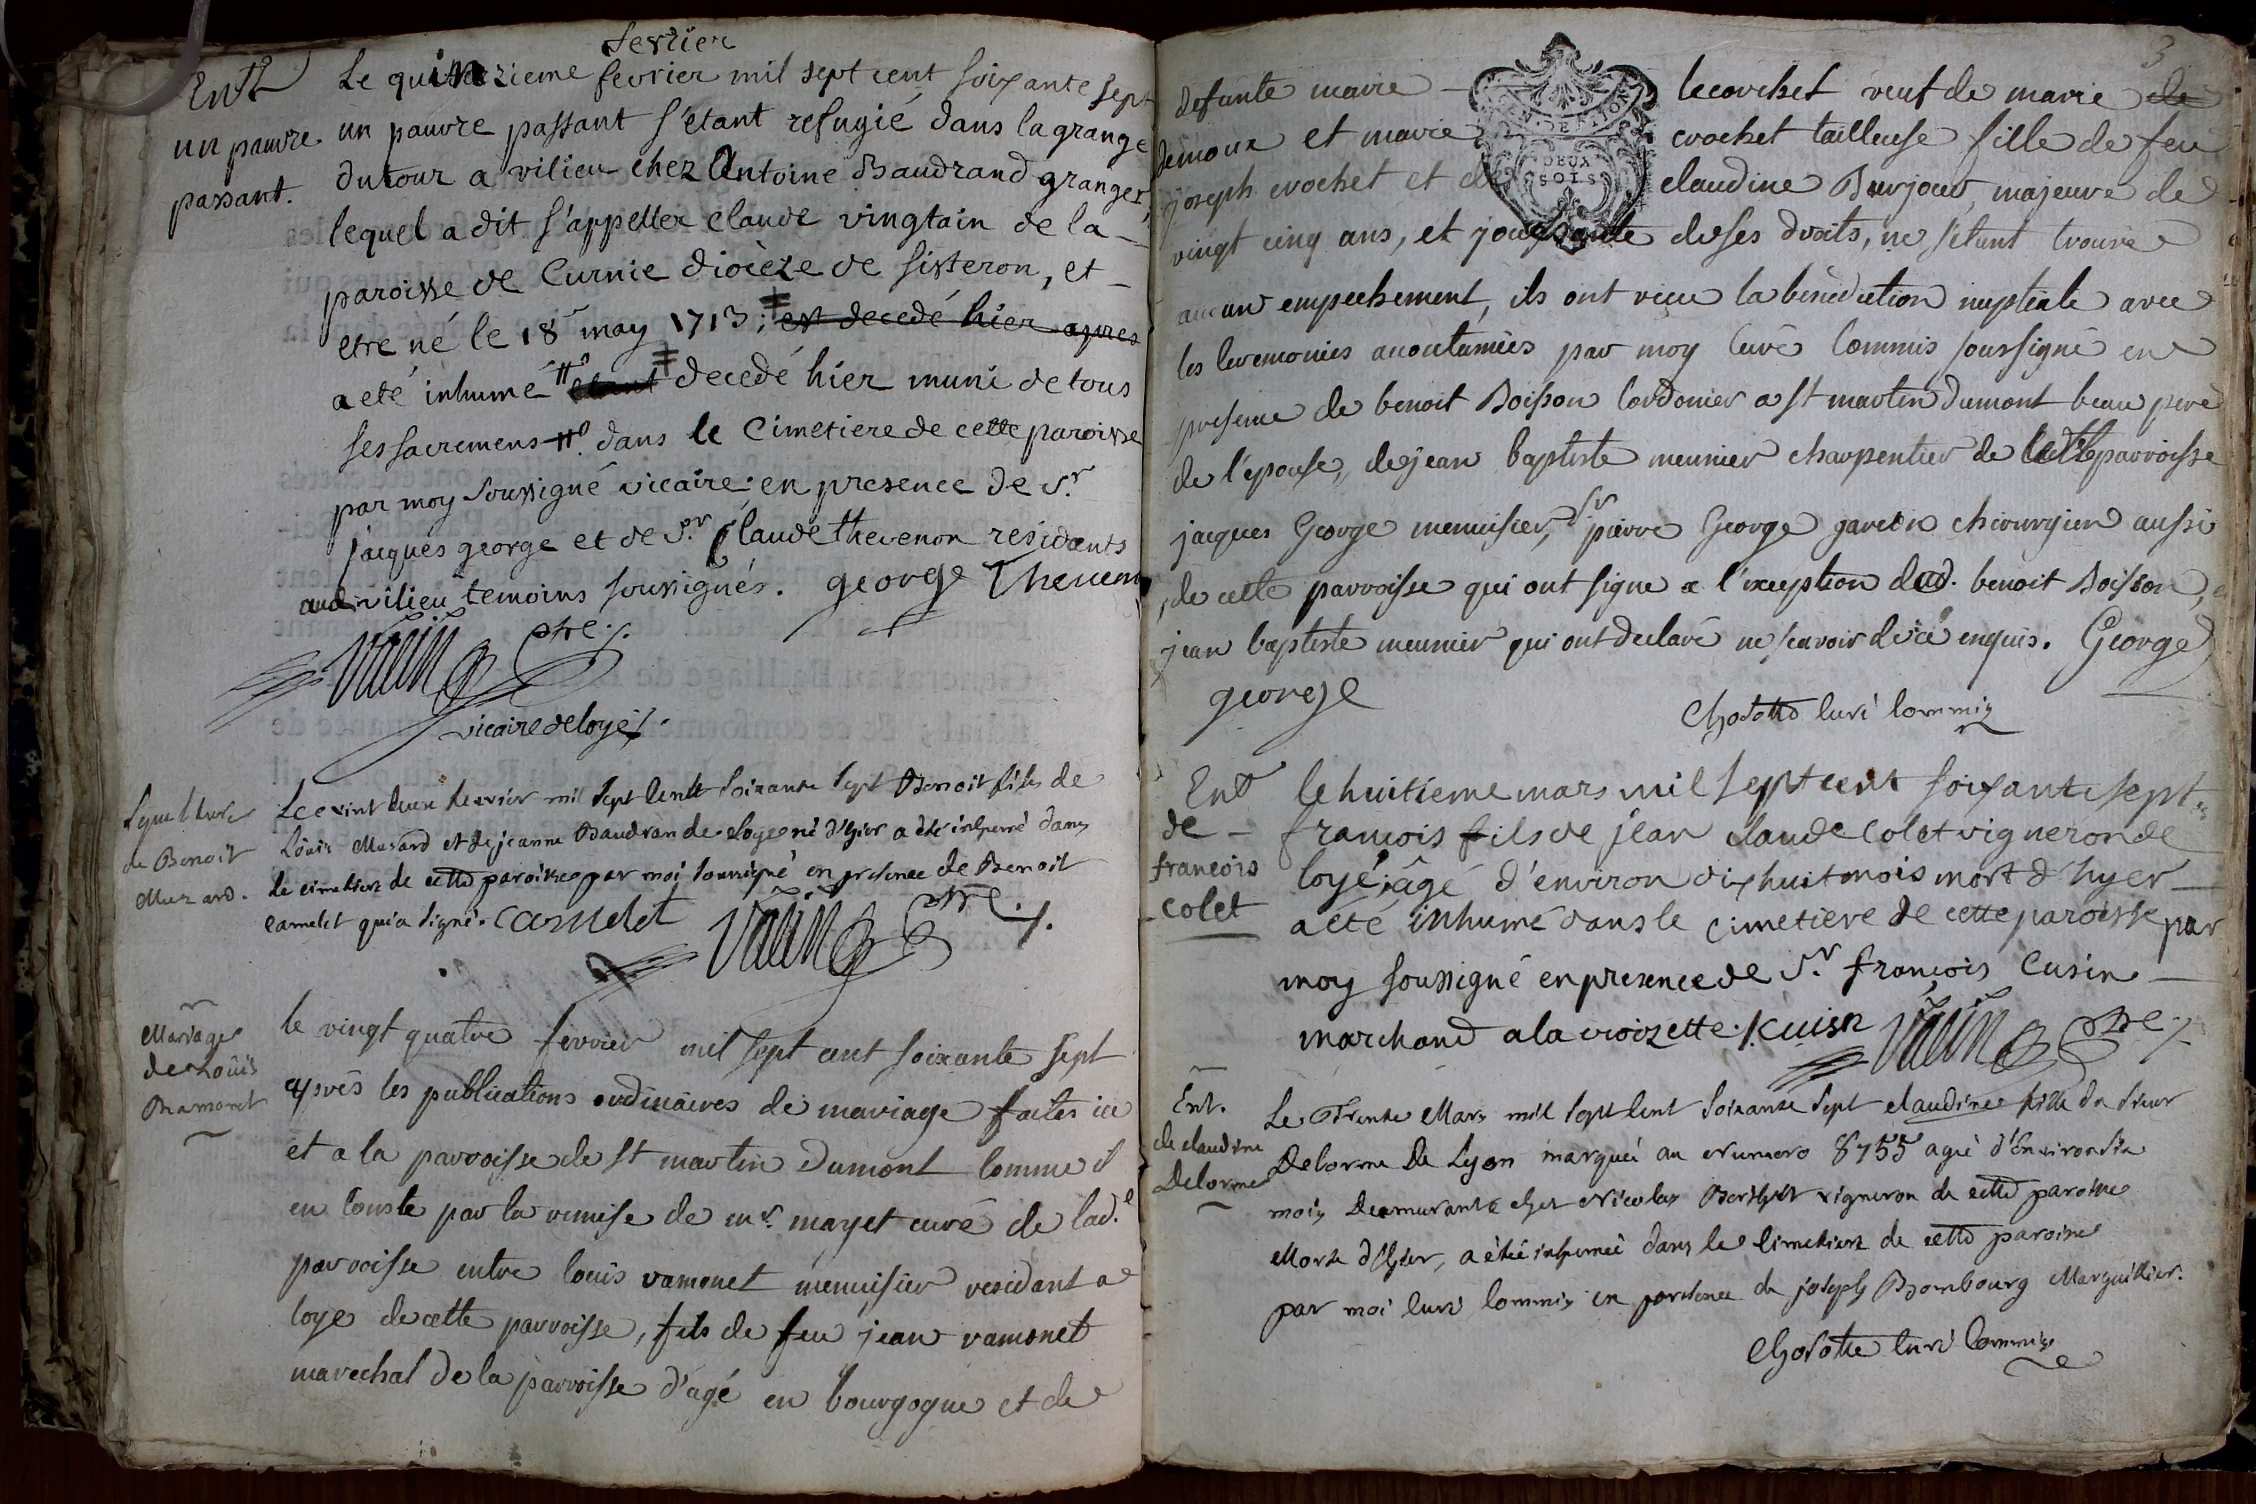 fevrier
Entt
un pauvre
passant.
Le quinzieme fevrier mil sept cent soixante sept
un pauvre passant s'etant refugié dans la grange
dutour a vilieu chez Antoine Baudrand granger,
lequel a dit s'appeller claude vingtain de la
paroisse de Curnie diocèze de sisteron, et
etre né le 18e may 1713; est decedé hier apres
a eté inhumé etant decedé hier muni de tous
ses sacremens dans le Cimetiere de cette paroisse
par moy soussigné vicaire en presence de Sr.
jacques george et de Sr. Claude thevenon residents
aud. vilieu temoins soussignés. george Thevenon
ptre
vicaire de loyes
Sepulture
de Benoit
Muzard.
Le vint deux fevrier mil sept cent soixante sept Benoit fils de
Loüis Musard et de jeanne Baudran de loyes né d'hier a été inhumé dans
le cimetiere de cette paroisse par moi soussigné en presence de Benoit
camelet qui a signé. camelet ptre
Mariage
de Loüis
Ramonet
le vingt quatre fevrier mil sept cent soixante sept
après les publications ordinaires de mariage faites ici
et a la parroisse de st martin Dumont comme il
en conste par la remise de mr. mayet curé de lad.e
parroisse entre louis ramonet menuisier residant a
loye de cette parroisse, fils de feu jean ramonet
marechal de la parroisse d'agé en bourgogne et de
3
defunte marie lecorchet veuf de marie de
demoux et marie crochet tailleuse fille de feu
joseph crochet et de claudine Burjoud, majeure de
DEUX
SOLS
vingt cinq ans, et jouissante de ses droits, ne s'étant trouvé
aucun empechement, ils ont reçu la bénédiction nuptiale avec
les ceremonies acoutumées par moy Curé Commis soussigné en
presence de benoit Boisson Cordonier a st martin Dumont beau pere
de l'epouse, de jean baptiste meunier charpentier de cette parroisse
jacques George menuisier, sr pierre George garcon chirurgien aussi
de cette parroisse qui ont signe a l'exception dud. benoit Boisson, et
jean baptiste meunier qui ont declaré ne scavoir de ce enquis. George
george
Chosotte Curé Commis
Entt
de
francois
colet
le huitieme mars mil sept cent soixante sept
francois fils de jean claude Colet vigneron de
loyé, âgé d'environ dix huit mois mort d'hyer
a eté inhumé dans le cimetiere de cette paroisse par
moy soussigné en presence de Sr. françois Cusin
marchand a la croizette. Cuisn ptre
Ent.
de claudine
Delorme
Le Trente Mars mil sept cent soixante sept claudine fille du sieur
Delorme De Lyon marqué au Numero 8755 agée d'Environ six
mois Demeurante chez Nicolas Berthet vigneron de cette paroisse
Morte d'hier, a étée inhumée dans le Cimetiere de cette paroisse
par moi Curé Commis en presence de joseph Bombourg Marguillier.
Chosotte Curé Commis